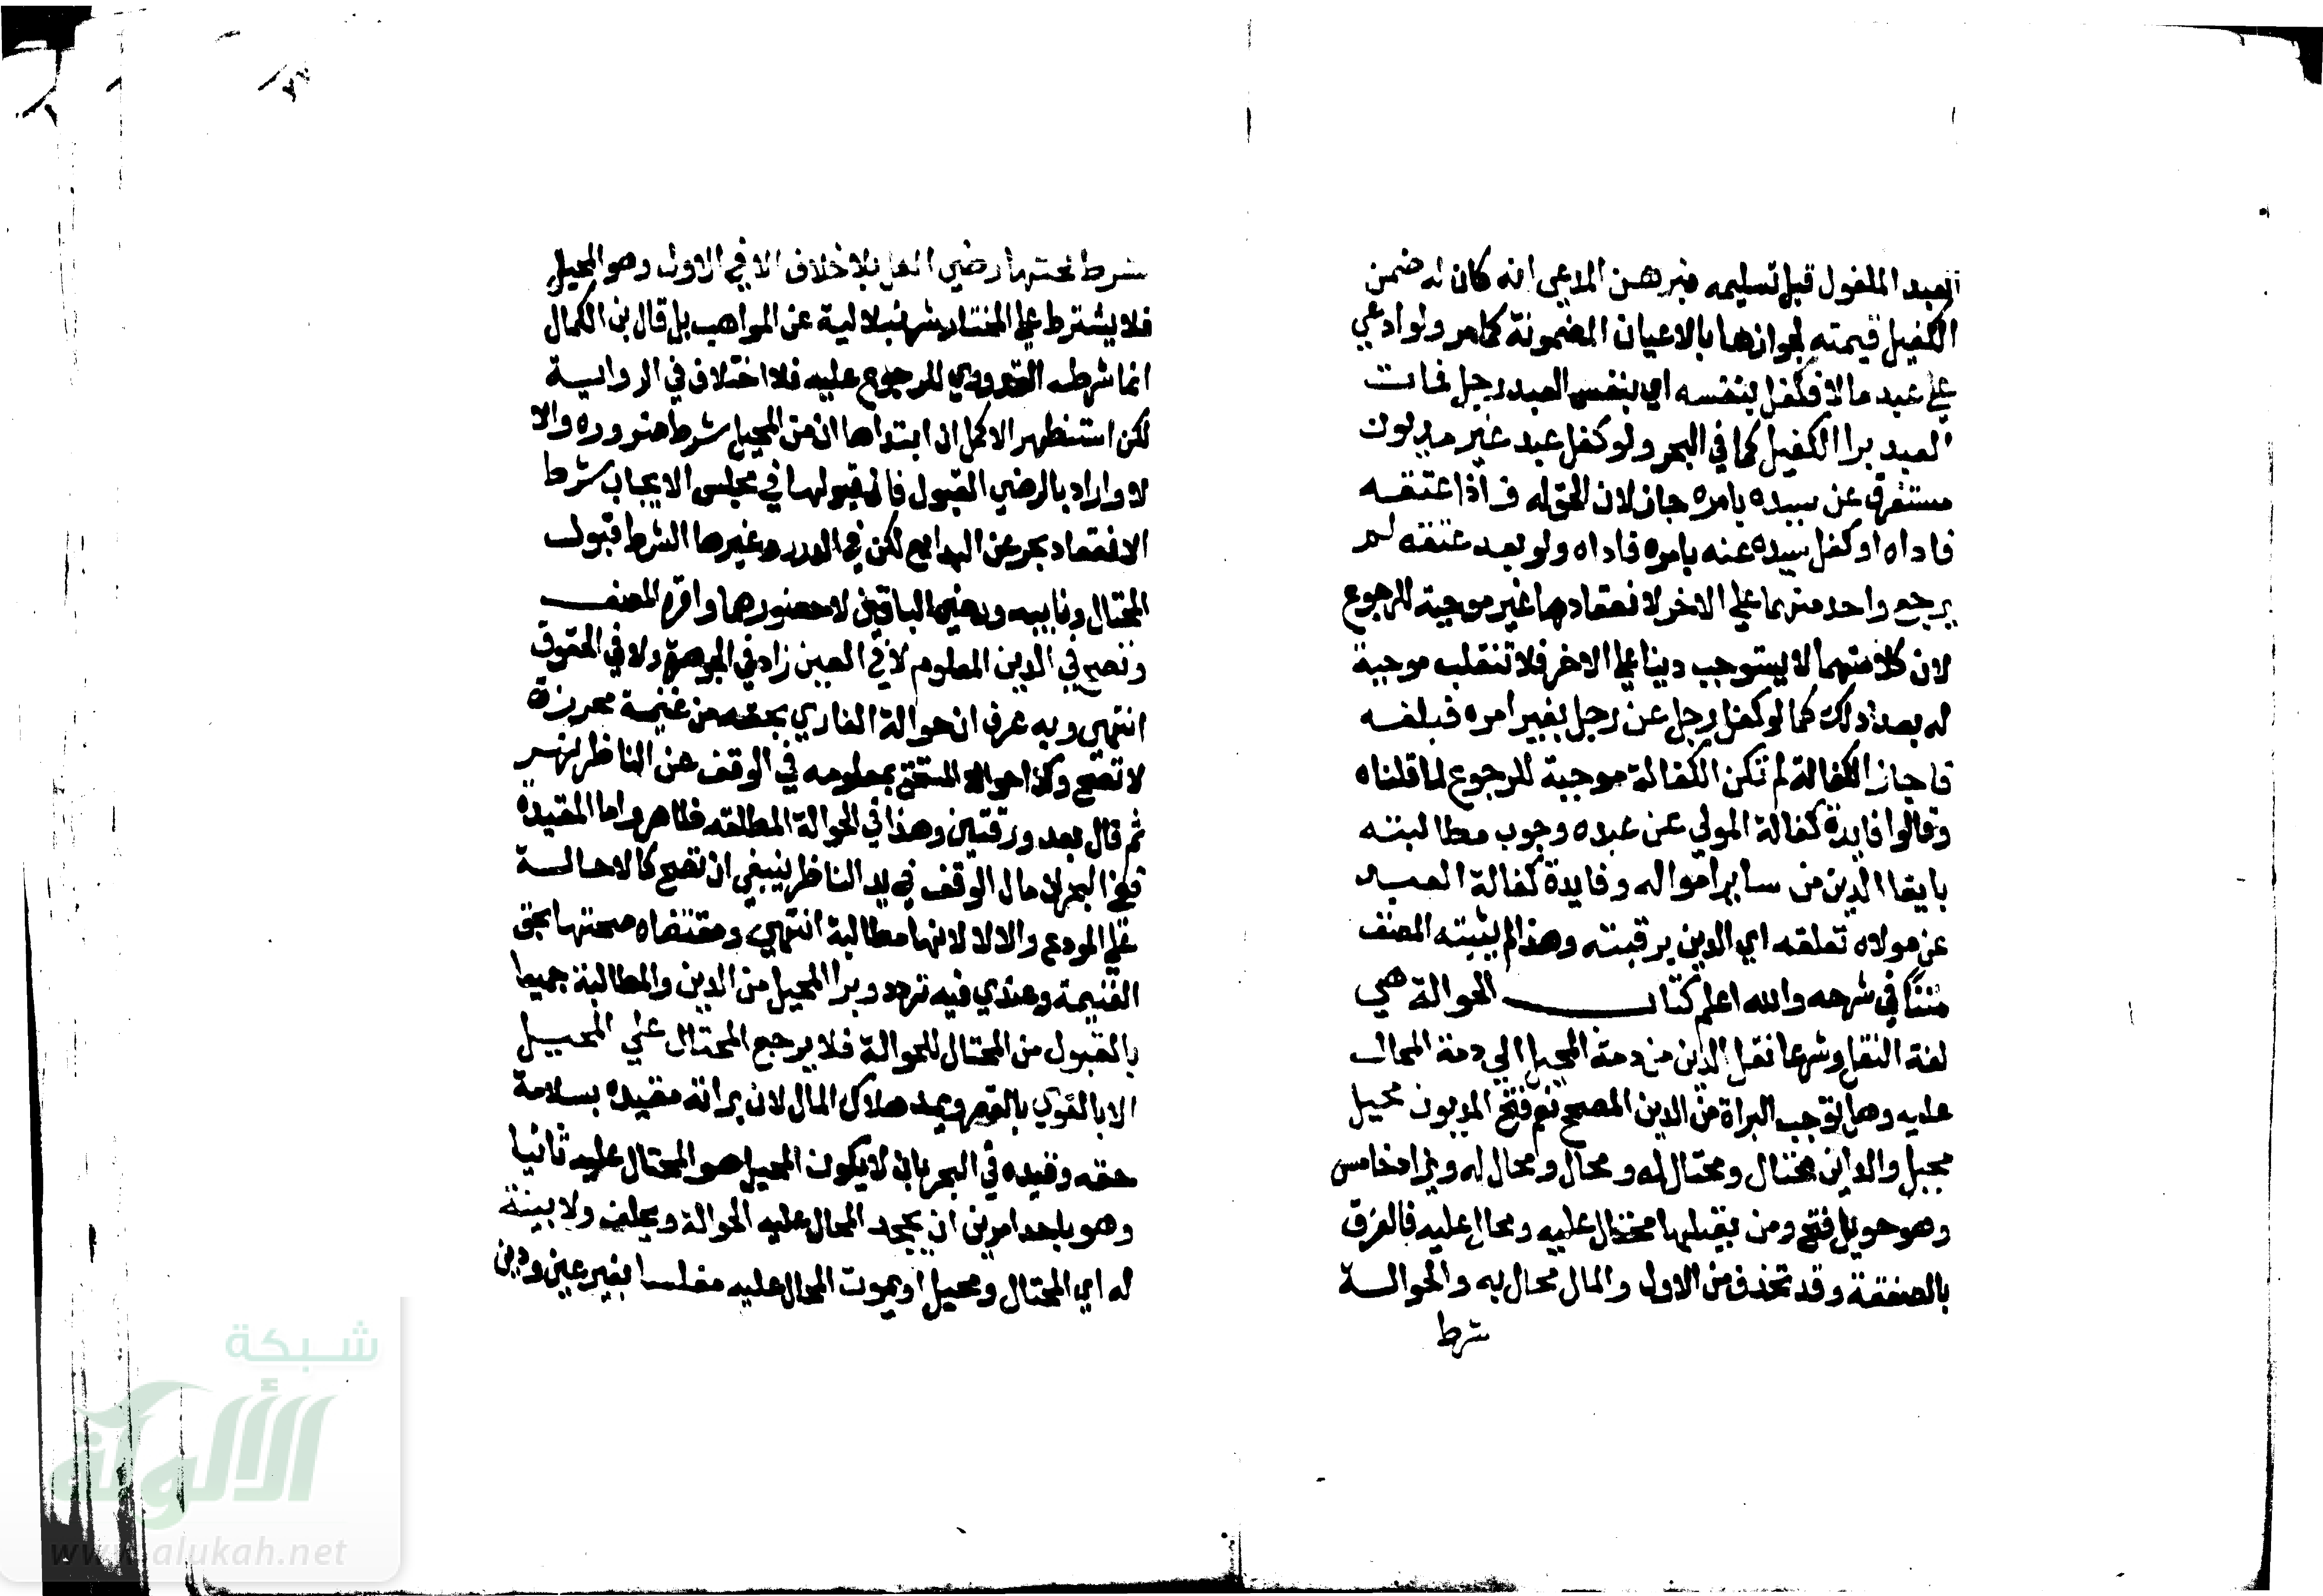 العبد المكفول قبل تسليمه فبرهن المدعي انه كان له ضمن
الكفيل قيمته لجوازها بالاعيان المضمونة كما مر ولو ادعي
علي عبد مالا فكفل بنفسه اي بنفس العبد رجل فمات
العبد برا الكفيل كما في البحر ولو كفل عبد غير مديون
مستغرق عن سيده بامره جاز لان الحق له فاذا عتقه
فاداه او كفل سيده عنه بامره فاداه ولو بعد عتقه لم
يرجع واحد منهما علي الاخر لانعقادها غير موجبة للرجوع
لان كلا منهما لا يستوجب دينا علي الاخر فلا تنقلب موجبة
له بعد ذلك كما لو كفل رجل عن رجل بغير امره فبلغه
فاجاز الكفالة لم تكن الكفالة موجبة للرجوع لما قلناه
وقالوا فايدة كفالة المولي عن عبده وجوب مطالبته
بايفا الدين من ساير امواله وفايدة كفالة العبد
عن مولاه تعلقه اي الدين برقبته وهذا لم يثبته المصنف
متنا في شرحه والله اعلم كتاب الحوالة هي
لغة النقل وشرعا نقل الدين من ذمة المحيل الي ذمة المحال
عليه وهل توجب البراة من الدين المصحح نعم فتح المديون محيل
محيل والداين محتال ومحتال له ومحال ومحال له ويزاد خامس
وهو حويل فتح ومن يقبلها محتال عليه ومحال عليه فالفرق
بالصلة وقد تحذف من الاول والمال محال به والحوالة
شرط
شرط لصحتها رضي الكل بلا خلاف الا في الاول وهو المحيل
فلا يشترط علي المختار شرنبلالية عن المواهب بل قال بن الكمال
انما شرطه القدوري للرجوع عليه فلا اختلاف في الرواية
لكن استظهر الاكمل ان ابتداها ان من المحيل شرط ضرورة والا
لا واراد بالرضي القبول فان قبولها في مجلس الايجاب شرط
الانعقاد بحر عن البدايع لكن في الدرر وغيرها الشرط قبول
المحتال ونايبه ورضي الباقين لا حضورها واقره المصنف
وتصح في الدين المعلوم لا في العين زاد في الجوهرة ولا في الحقوق
انتهي وبه عرف ان حوالة الغازي بحقه من غنيمة محرزة
لا تصح وكذا حوالة المستحق بمعلومه في الوقف عن الناظر نهر
ثم قال بعد ورقتين وهذا في الحوالة المطلقه ظاهر واما المقيدة
ففي البحر لان مال الوقف في يد الناظر ينبغي ان تصح كالاحالة
علي المودع والا لا لانها مطالبة انتهي ومقتضاه صحتها بحق
الغنيمة وعندي فيه تردد وبرا المحيل من الدين والمطالبة جميعا
بالقبول من المحتال للحوالة فلا يرجع المحتال علي المحيل
الا بالتوي بالقصر ويمد هلاك المال لان براته مقيده بسلامة
حقه وقيده في البحر بان لا يكون المحيل هو المحتال عليه ثانيا
وهو باحد امرين ان يجحد المحال عليه الحوالة ويحلف ولا بينة
له اي المحتال ومحيل او يموت المحال عليه مفلسا بغير عين ودين
شبكة
الألوكة
www.alukah.net